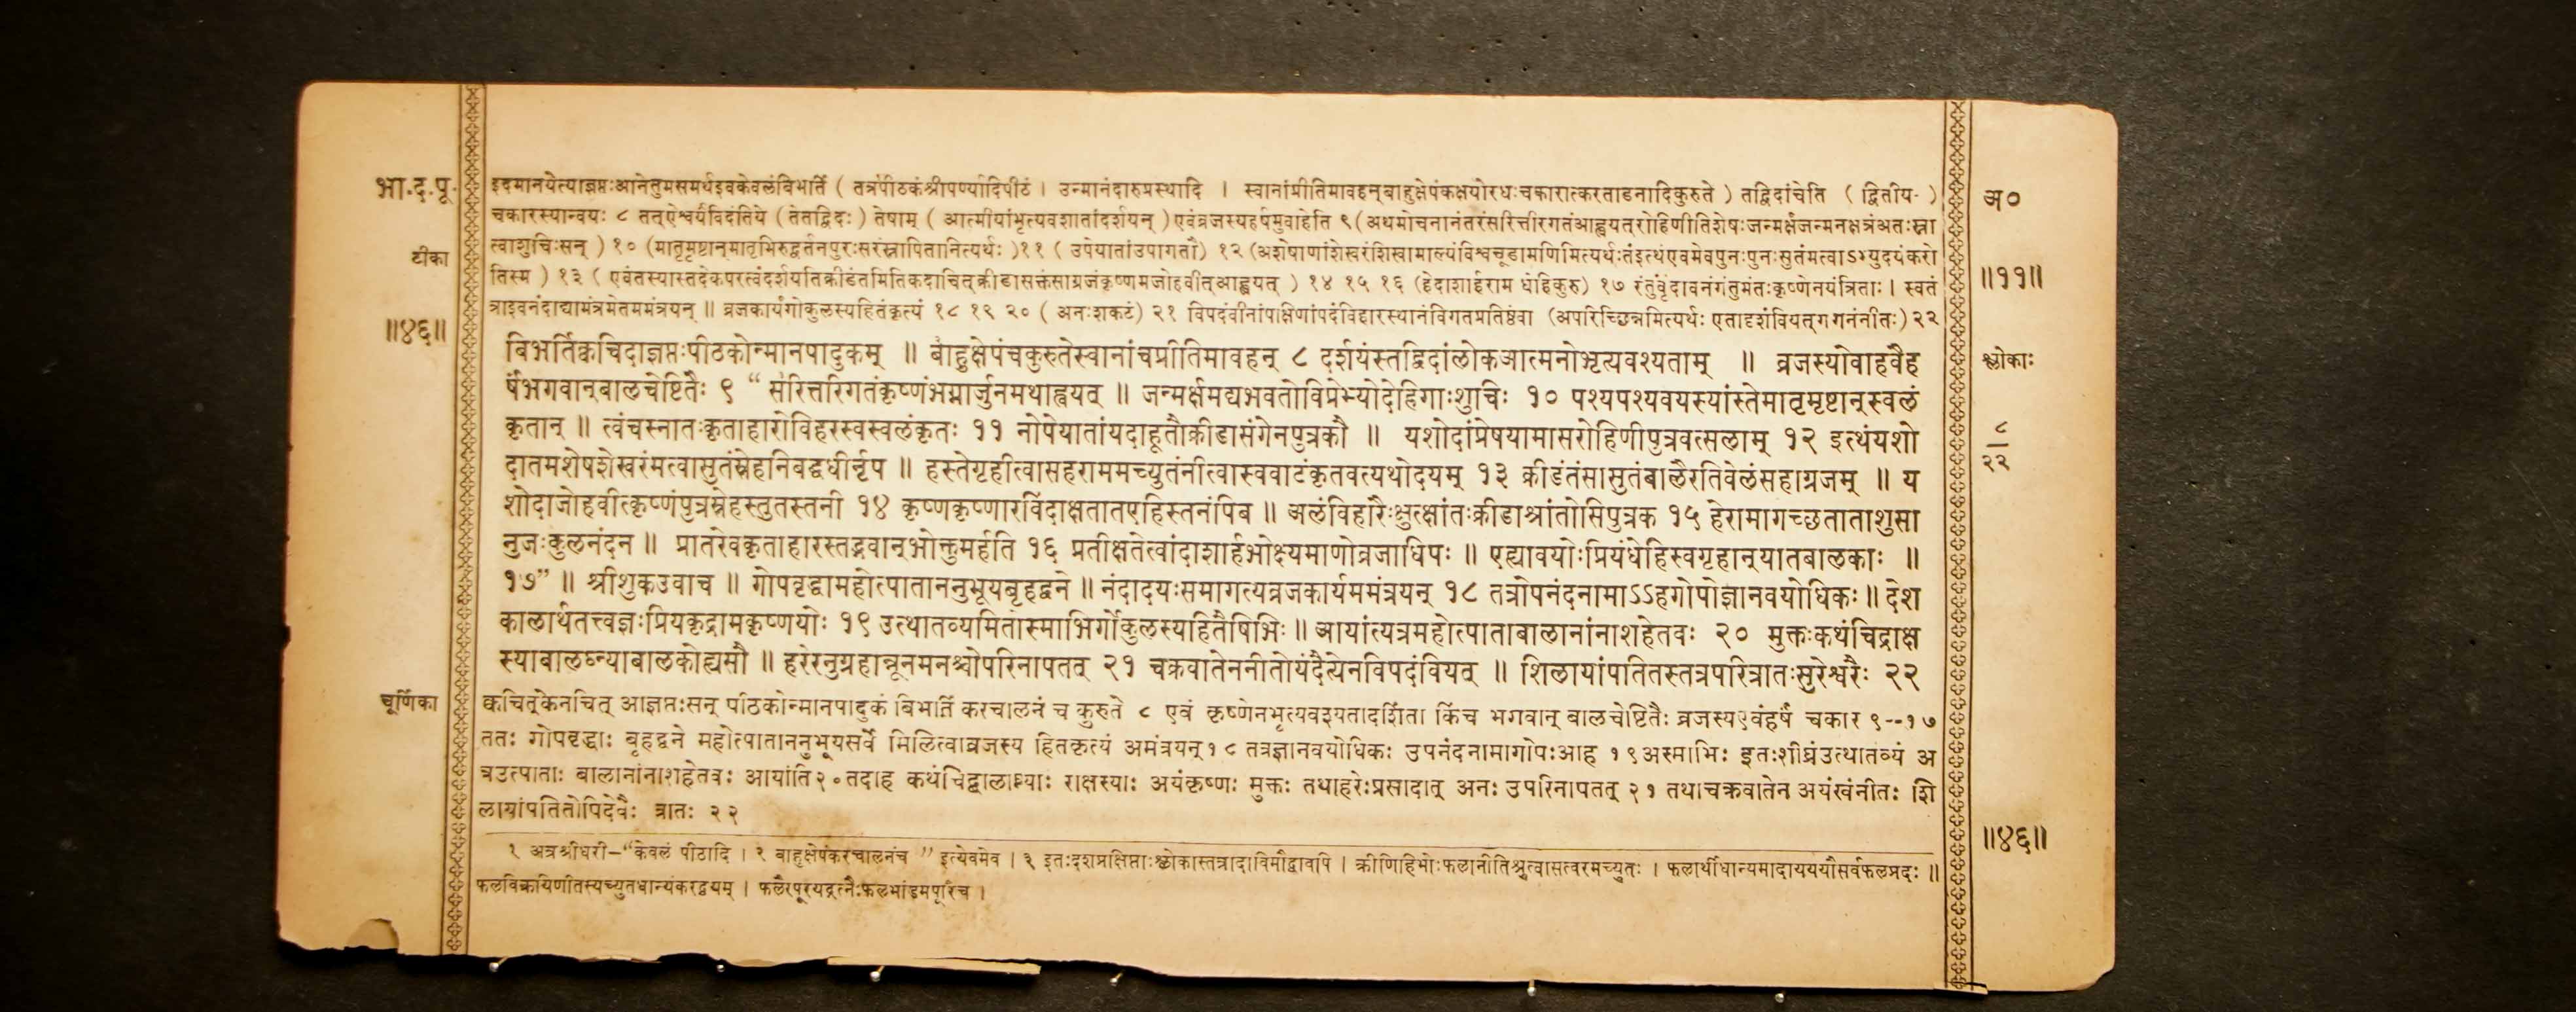 भा.द.पू.
टीका
॥४६॥
इदमानयेत्याज्ञप्तःआनेतुमसमर्थइवकेवलंबिभर्ति ( तत्रपीठकंश्रीपर्ण्यादिपीठं । उन्मानंदारुप्रस्थादि । स्वानांप्रीतिमावहन्बाहुक्षेपंकक्षयोरधःचकारात्करताडनादिकुरुते ) तद्विदांचेति ( द्वितीय- )
चकारस्यान्वयः ८ तत्ऐश्वर्यंविदंतिये ( तेतद्विदः ) तेषाम् ( आत्मीयांभृत्यवशातांदर्शयन् ) एवंव्रजस्यहर्षमुवाहेति ९ (अथमोचनानंतरंसरित्तीरगतंआह्वयत्रोहिणीतिशेषःजन्मर्क्षंजन्मनक्षत्रंअतःस्ना
त्वाशुचिःसन् ) १० (मातृमृष्टान्मातृभिरुद्वर्तनपुरःसरंस्नापितानित्यर्थः )११ ( उपेयातांउपागतौ) १२ (अशेषाणांशेखरंशिखामाल्यंविश्वचूडामणिमित्यर्थःतंइत्थंएवमेवपुनःपुनःसुतंमत्वाऽभ्युदयंकरो
तिस्म ) १३ ( एवंतस्यास्तदेकपरत्वंदर्शयतिक्रीडंतमितिकदाचित्क्रीडासक्तंसाग्रजंकृष्णमजोहवीत्आह्वयत् ) १४ १५ १६ (हेदाशार्हराम धेहिकुरु) १७ रंतुंवृंदावनंगंतुमंतःकृष्णेनयंत्रिताः। स्वतं
त्राइवनंदाद्यामंत्रमेतममंत्रयन् ॥ व्रजकार्यंगोकुलस्यहितंकृत्यं १८ १९ २० ( अनःशकटं) २१ विपदंवीनांपक्षिणांपदंविहारस्थानंविगतप्रतिष्ठंवा (अपरिच्छिन्नमित्यर्थः एतादृशंवियत्गगनंनीतः) २२
बिभर्तिक्वचिदाज्ञप्तःपीठकोन्मानपादुकम् ॥ बाहुक्षेपंचकुरुतेस्वानांचप्रीतिमावहन् ८ दर्शयंस्तद्विदांलोकआत्मनोभृत्यवश्यताम् ॥ व्रजस्योवाहवैह
र्षंभगवान्बालचेष्टितैः ९ “ सरित्तरिगतंकृष्णंभग्नार्जुनमथाह्वयत् ॥ जन्मर्क्षमद्यभवतोविप्रेभ्योदेहिगाःशुचिः १० पश्यपश्यवयस्यांस्तेमातृमृष्टान्स्वलं
कृतान् ॥ त्वंचस्नातःकृताहारोविहरस्वस्वलंकृतः ११ नोपेयातांयदाहूतौक्रीडासंगेनपुत्रकौ ॥ यशोदांप्रेषयामासरोहिणीपुत्रवत्सलाम् १२ इत्थंयशो
दातमशेषशेखरंमत्वासुतंस्नेहनिबद्धधीर्नृप ॥ हस्तेगृहीत्वासहराममच्युतंनीत्वास्ववाटंकृतवत्यथोदयम् १३ क्रीडंतंसासुतंबालैरतिवेलंसहाग्रजम् ॥ य
शोदाजोहवीत्कृष्णंपुत्रस्नेहस्नुतस्तनी १४ कृष्णकृष्णारविंदाक्षतातएहिस्तनंपिब ॥ अलंविहारैःक्षुत्क्षांतःक्रीडाश्रांतोसिपुत्रक १५ हेरामागच्छताताशुसा
नुजःकुलनंदन ॥ प्रातरेवकृताहारस्तद्भवान्भोक्तुमर्हति १६ प्रतीक्षतेत्वांदाशार्हभोक्ष्यमाणोव्रजाधिपः ॥ एह्यावयोःप्रियंधेहिस्वगृहान्यातबालकाः ॥
१७” ॥ श्रीशुकउवाच ॥ गोपवृद्धामहोत्पाताननुभूयबृहद्वने ॥ नंदादयःसमागत्यव्रजकार्यममंत्रयन् १८ तत्रोपनंदनामाऽऽहगोपोज्ञानवयोधिकः॥ देश
कालार्थतत्त्वज्ञःप्रियकृद्रामकृष्णयोः १९ उत्थातव्यमितास्माभिर्गोकुलस्यहितैषिभिः॥ आयांत्यत्रमहोत्पाताबालानांनाशहेतवः २० मुक्तःकथंचिद्राक्ष
स्याबालघ्न्याबालकोह्यसौ ॥ हरेरनुग्रहान्नूनमनश्चोपरिनापतत् २१ चक्रवातेननीतोयंदैत्येनविपदंवियत् ॥ शिलायांपतितस्तत्रपरित्रातःसुरेश्वरैः २२
चूर्णिका
क्वचित्केनचित् आज्ञप्तःसन् पीठकोन्मानपादुकं बिभर्ति करचालनं च कुरुते ८ एवं कृष्णेनभृत्यवश्यतादर्शिता किंच भगवान् बालचेष्टितैः व्रजस्यएवंहर्षं चकार ९--१७
ततः गोपवृद्धाः बृहद्वने महोत्पाताननुभूयसर्वे मिलित्वाव्रजस्य हितकृत्यं अमंत्रयन्१८ तत्रज्ञानवयोधिकः उपनंदनामागोपःआह १९अस्माभिः इतःशीघ्रंउत्थातव्यं अ
त्रउत्पाताः बालानांनाशहेतवः आयांति२०तदाह कथंचिद्बालघ्न्याः राक्षस्याः अयंकृष्णः मुक्तः तथाहरेःप्रसादात् अनः उपरिनापतत् २१ तथाचक्रवातेन अयंखंनीतः शि
लायांपतितोपिदेवैः त्रातः २२
१ अत्रश्रीधरी–“केवलं पीठादि । २ बाहुक्षेपंकरचालनंच ” इत्येवमेव । ३ इतःदशप्रक्षिप्ताःश्लोकास्तत्रादाविमौद्वावपि । क्रीणिहिभोःफलानीतिश्रुत्वासत्वरमच्युतः । फलार्थीधान्यमादायययौसर्वफलप्रदः ॥
फलविक्रयिणीतस्यच्युतधान्यंकरद्वयम् । फलैरपूरयद्रत्नैःफलभांडमपूरिच ।
अ०
॥११॥
श्लोकाः
८
२२
॥४६॥